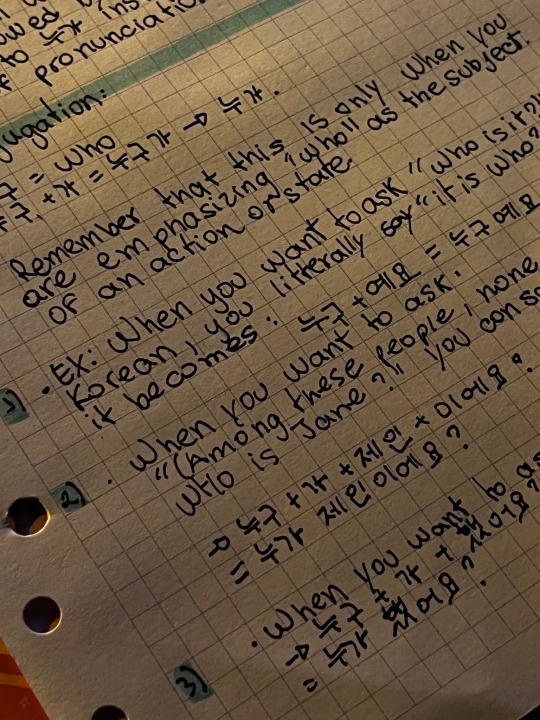 to 누가 ins
f pronunciatio
ugation:
구 = who
구, +가 = 누구가 → 누가.
Remember that this is only when you
are emphasizing "who" as the subject
of an action or state.
1) • Ex: When you want to ask "Who is it?"
Korean, you litterally say "it is who?
it becomes: 누구 + 예요 = 누구예요
2) • When you want to ask.
"(Among these people, none
who is Jane?" you can sa
→ 누구 + 가 + 제인 + 이에요?
= 누가 제인이에요?
3) • When you want to as
→ 누구 + 가 +
= 누가 었어요?